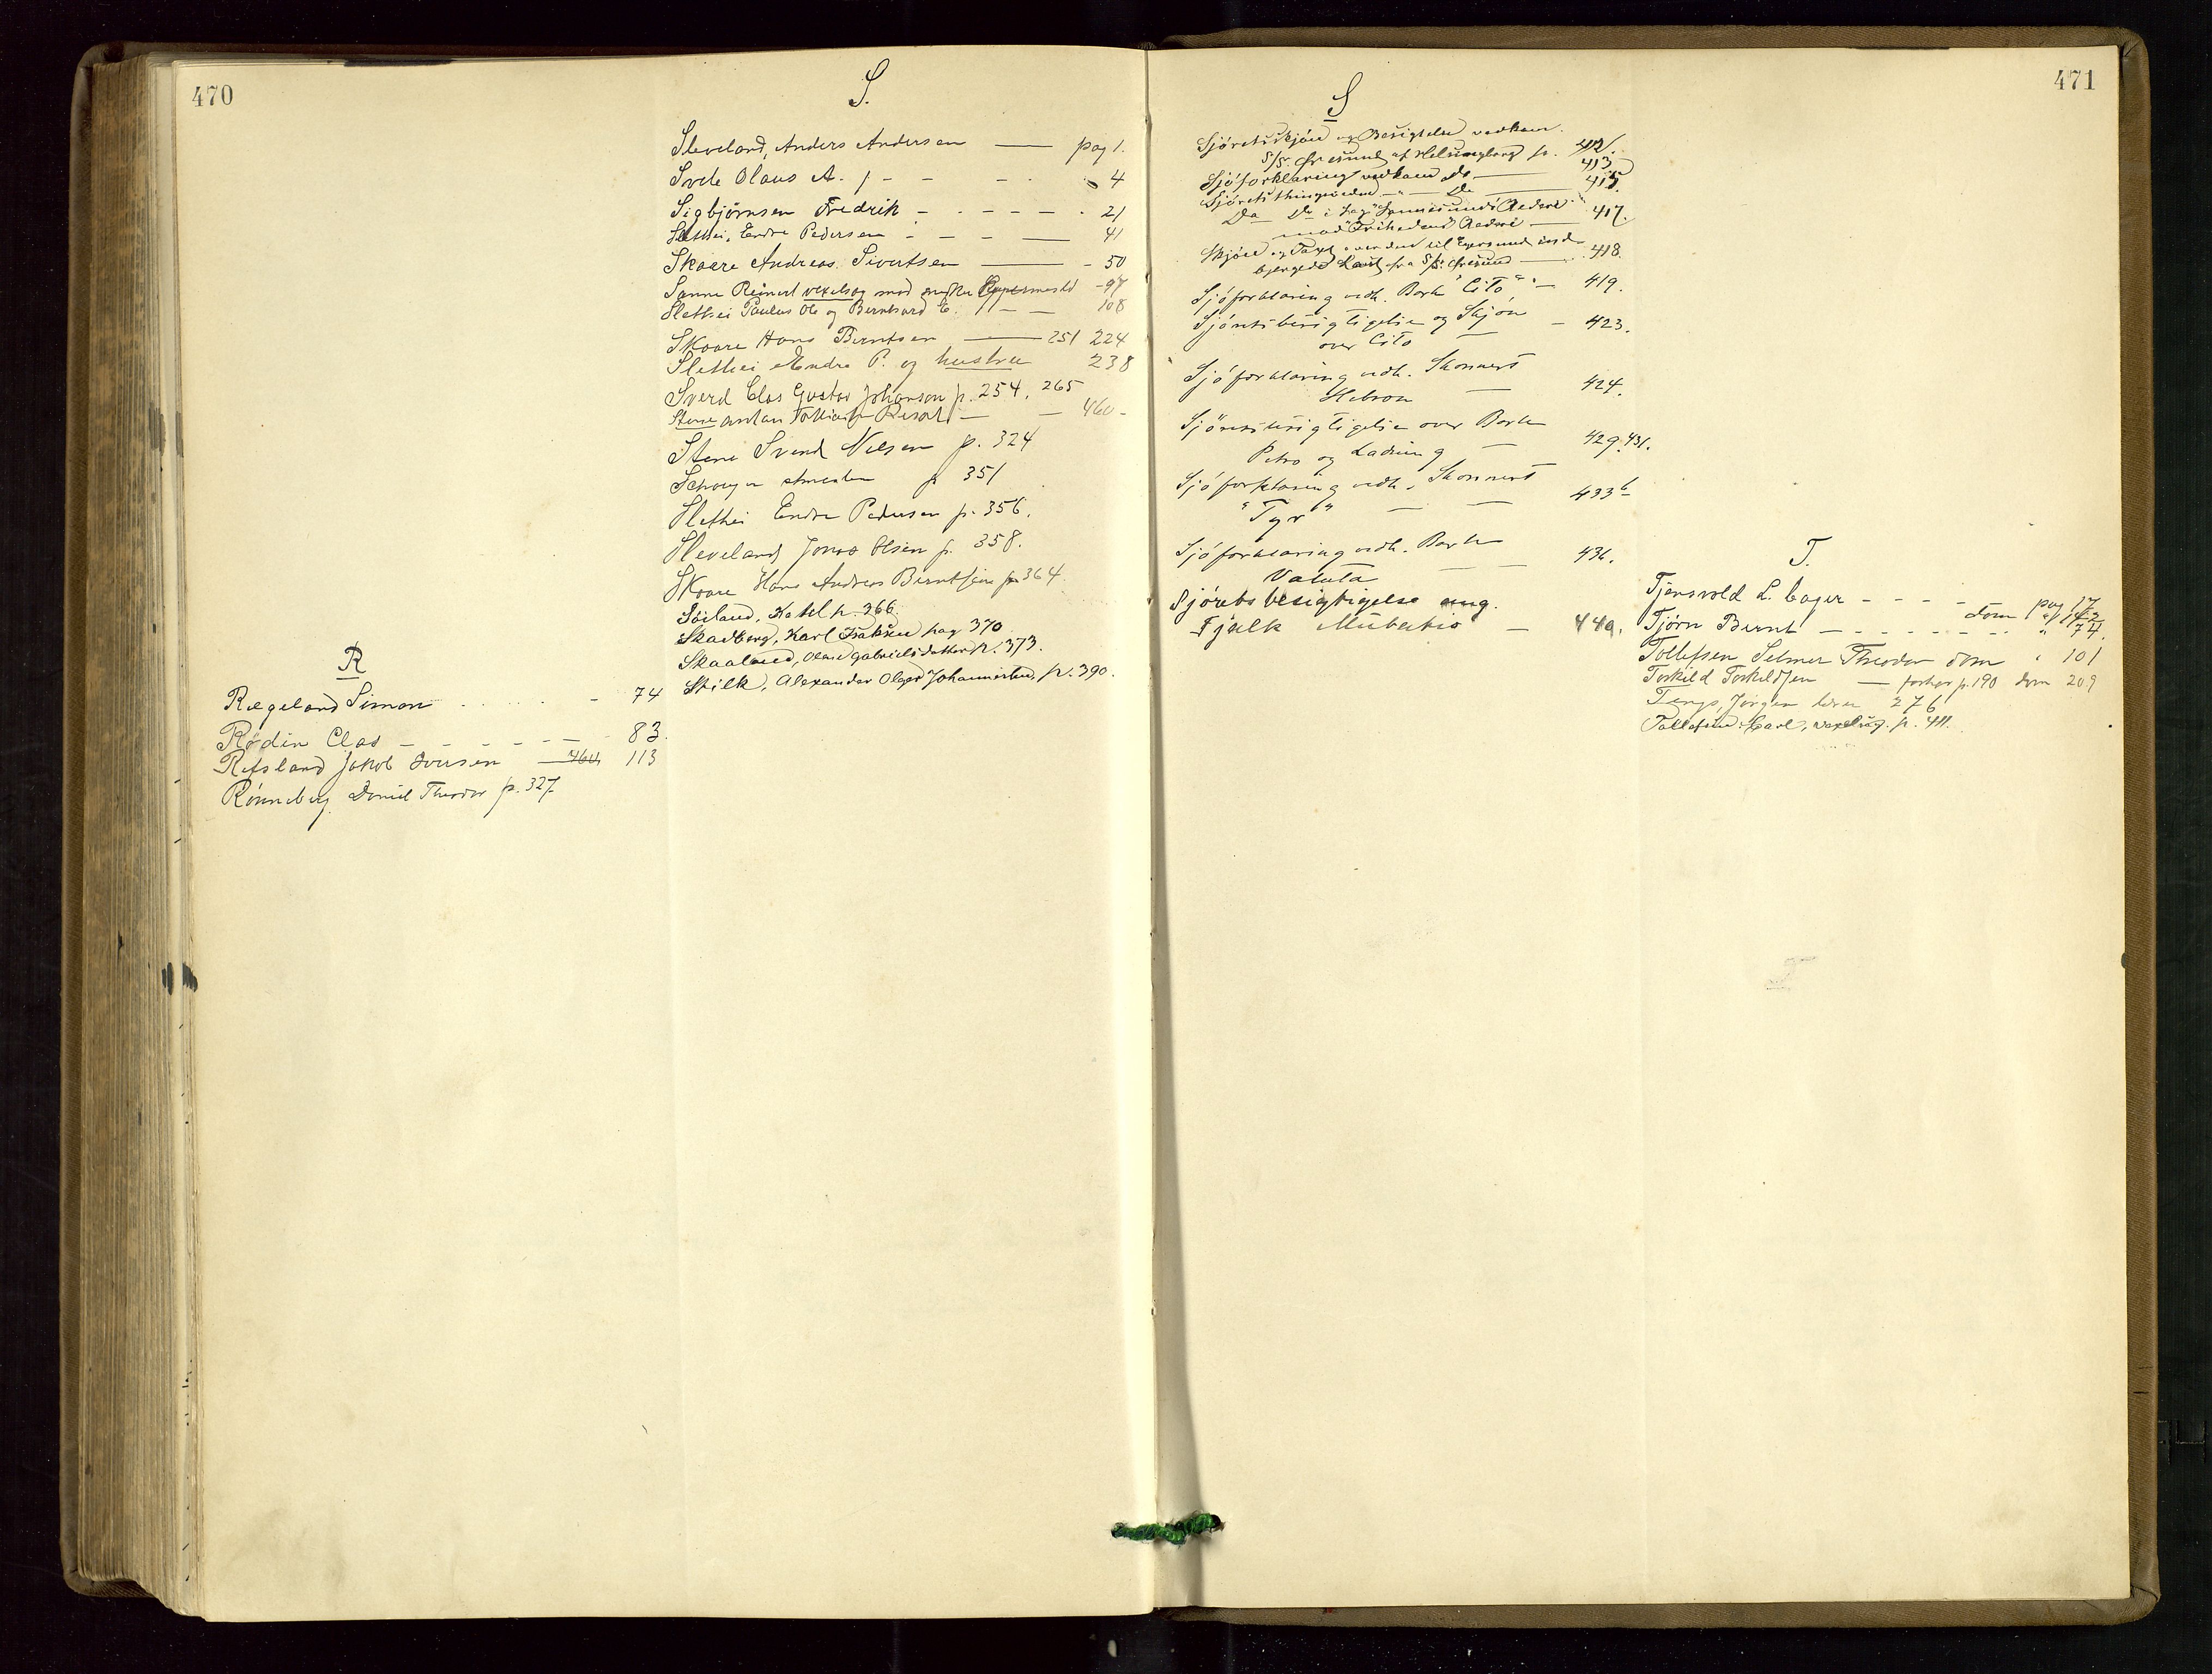 470
R
Rægeland Simon - 74
Rødin Clas - - - - - - - 83.
Refsland Jakob Iversen — 460 113
Rønneberg Daniel Theodor p. 327
S.
Sleveland, Anders Andersen — pag 1.
Svele Olaus A. - - - - 4
Sigbjørnsen Fredrik - - - - - 21
Slethei, Endre Pedersen - - - — 41
Skaare Andreas Sivertsen — - 50
Sanne Reinert vexelsag mod - 97
Slethei Paulus Ole og Berntsard E. - - 108
Skaare Hans Berntsen — 251 224
Slethei Endre P. og hustru 238
Sverd Clas Gustav Johanson p. 254, 265
Stene — — 460 -
Stene Svend Nilsen p. 324
p 351
Slethei Endre Pedersen p. 356.
Sleveland Jonas Olsen p. 358.
Skaare Hans Andreas Berntsen p 364.
Søiland, Ketel p. 366.
Skadberg, Karl Isaksen pag 370
Skaaland, Olene Gabrielsdatter p. 373.
Stilk, Alexander Olager Johannesen, p. 390.
471
S
Sjøretsskjøn og Besigtelse vedkom.
S/S. Øresund af Helsingborg p. 412.
Sjøforklaring vedkom Do — 413
Sjøretsthingsvidne — " — Do — 415.
Do Do i Sag "Rederi
mod "Frihedens" Rederi — 417.
Skjøn og Taxt over den til Egersund ind-
bjergede Last fra S/S. Øresund — 418.
Sjøforklaring vedk. Bark "Cito" — 419.
Sjøretsbesigtigelse og Skjøn
over Cito — - 423.
Sjøforklaring vedk. Skonnert
Hebron — 424.
Sjøretsbesigtigelse over Bark
Petro og Ladning — 429. 431.
Sjøforklaring vedk. Skonnert
"Tyr" — — 433 b
Sjøforklaring vedk. Bark
Valuta — — 436.
Sjørets besigtigelse ang.
Tjalk Mubatio — 449.
T.
Tjensvold L. Cager - - - - pag 17
Tjørn Bernt — - - - - dom " 142
" 74.
Tollefsen Selmer Theodor dom " 101
Torkild Torkildsen — forhør p. 190 dom 209
Tengs, Jørgen 276
Tollefsen Carl, vexelsag. p. 411.